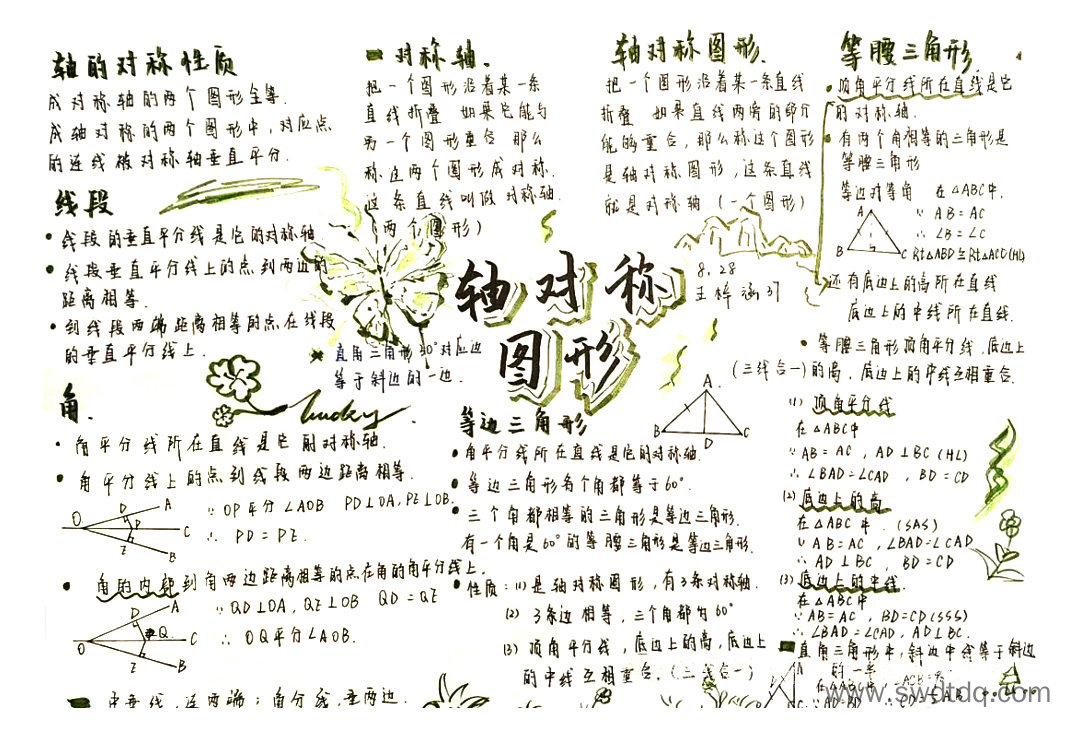 轴的对称性质
成对称轴的两个图形全等.
成轴对称的两个图形中,对应点
的连线被对称轴垂直平分.
线段
• 线段的垂直平分线是它的对称轴
• 线段垂直平分线上的点到两边的
距离相等.
• 到线段两端距离相等的点在线段
的垂直平分线上.
角.
• 角平分线所在直线是它的对称轴.
• 角平分线上的点到线段两边距离相等.
O D A P C E B
∵ OP平分∠AOB PD⊥OA, PE⊥OB.
∴ PD = PE.
• 角的内部到角两边距离相等的点在角的角平分线上.
O D A Q C E B
∵ QD⊥OA, QE⊥OB QD = QE
∴ OQ平分∠AOB.
中垂线,连两端;角分线,垂两边.
对称轴.
把一个图形沿着某一条
直线折叠 如果它能与
另一个图形重合 那么
称这两个图形成对称.
这条直线叫做对称轴.
(两个图形)
轴对称图形.
把一个图形沿着某一条直线
折叠 如果直线两旁的部分
能够重合,那么称这个图形
是轴对称图形,这条直线
就是对称轴(一个图形)
轴对称
图形
8.28
王梓涵 37
直角三角形30°对应边
等于斜边的一边.
lucky
等边三角形
A B D C
• 角平分线所在直线是它的对称轴.
• 等边三角形各个角都等于60°.
• 三个角都相等的三角形是等边三角形.
有一个角是60°的等腰三角形是等边三角形.
• 性质:(1)是轴对称图形,有3条对称轴.
(2) 3条边相等,三个角都为60°
(3) 顶角平分线,底边上的高,底边上
的中线互相重合.(三线合一)
等腰三角形
• 顶角平分线所在直线是它
的对称轴.
• 有两个角相等的三角形是
等腰三角形
等边对等角 在△ABC中.
A B C
∵ AB = AC
∴ ∠B = ∠C
Rt△ABD≌Rt△ACD(HL)
还有底边上的高所在直线
底边上的中线所在直线.
• 等腰三角形顶角平分线.底边上
(三线合一)的高.底边上的中线互相重合.
(1) 顶角平分线
在△ABC中
∵ AB = AC, AD⊥BC (HL)
∴ ∠BAD=∠CAD, BD = CD
(2) 底边上的高
在△ABC中. (SAS)
∵ AB = AC, ∠BAD=∠CAD
∴ AD⊥BC, BD = CD
(3) 底边上的中线.
在△ABC中
∵ AB = AC, BD=CD(SSS)
∴ ∠BAD=∠CAD, AD⊥BC.
直角三角形中,斜边中线等于斜边
的一半
www.swdtdq.com